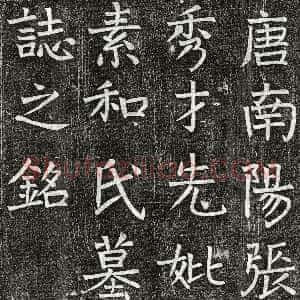 唐南陽張
秀才先妣
素和氏墓
誌之銘